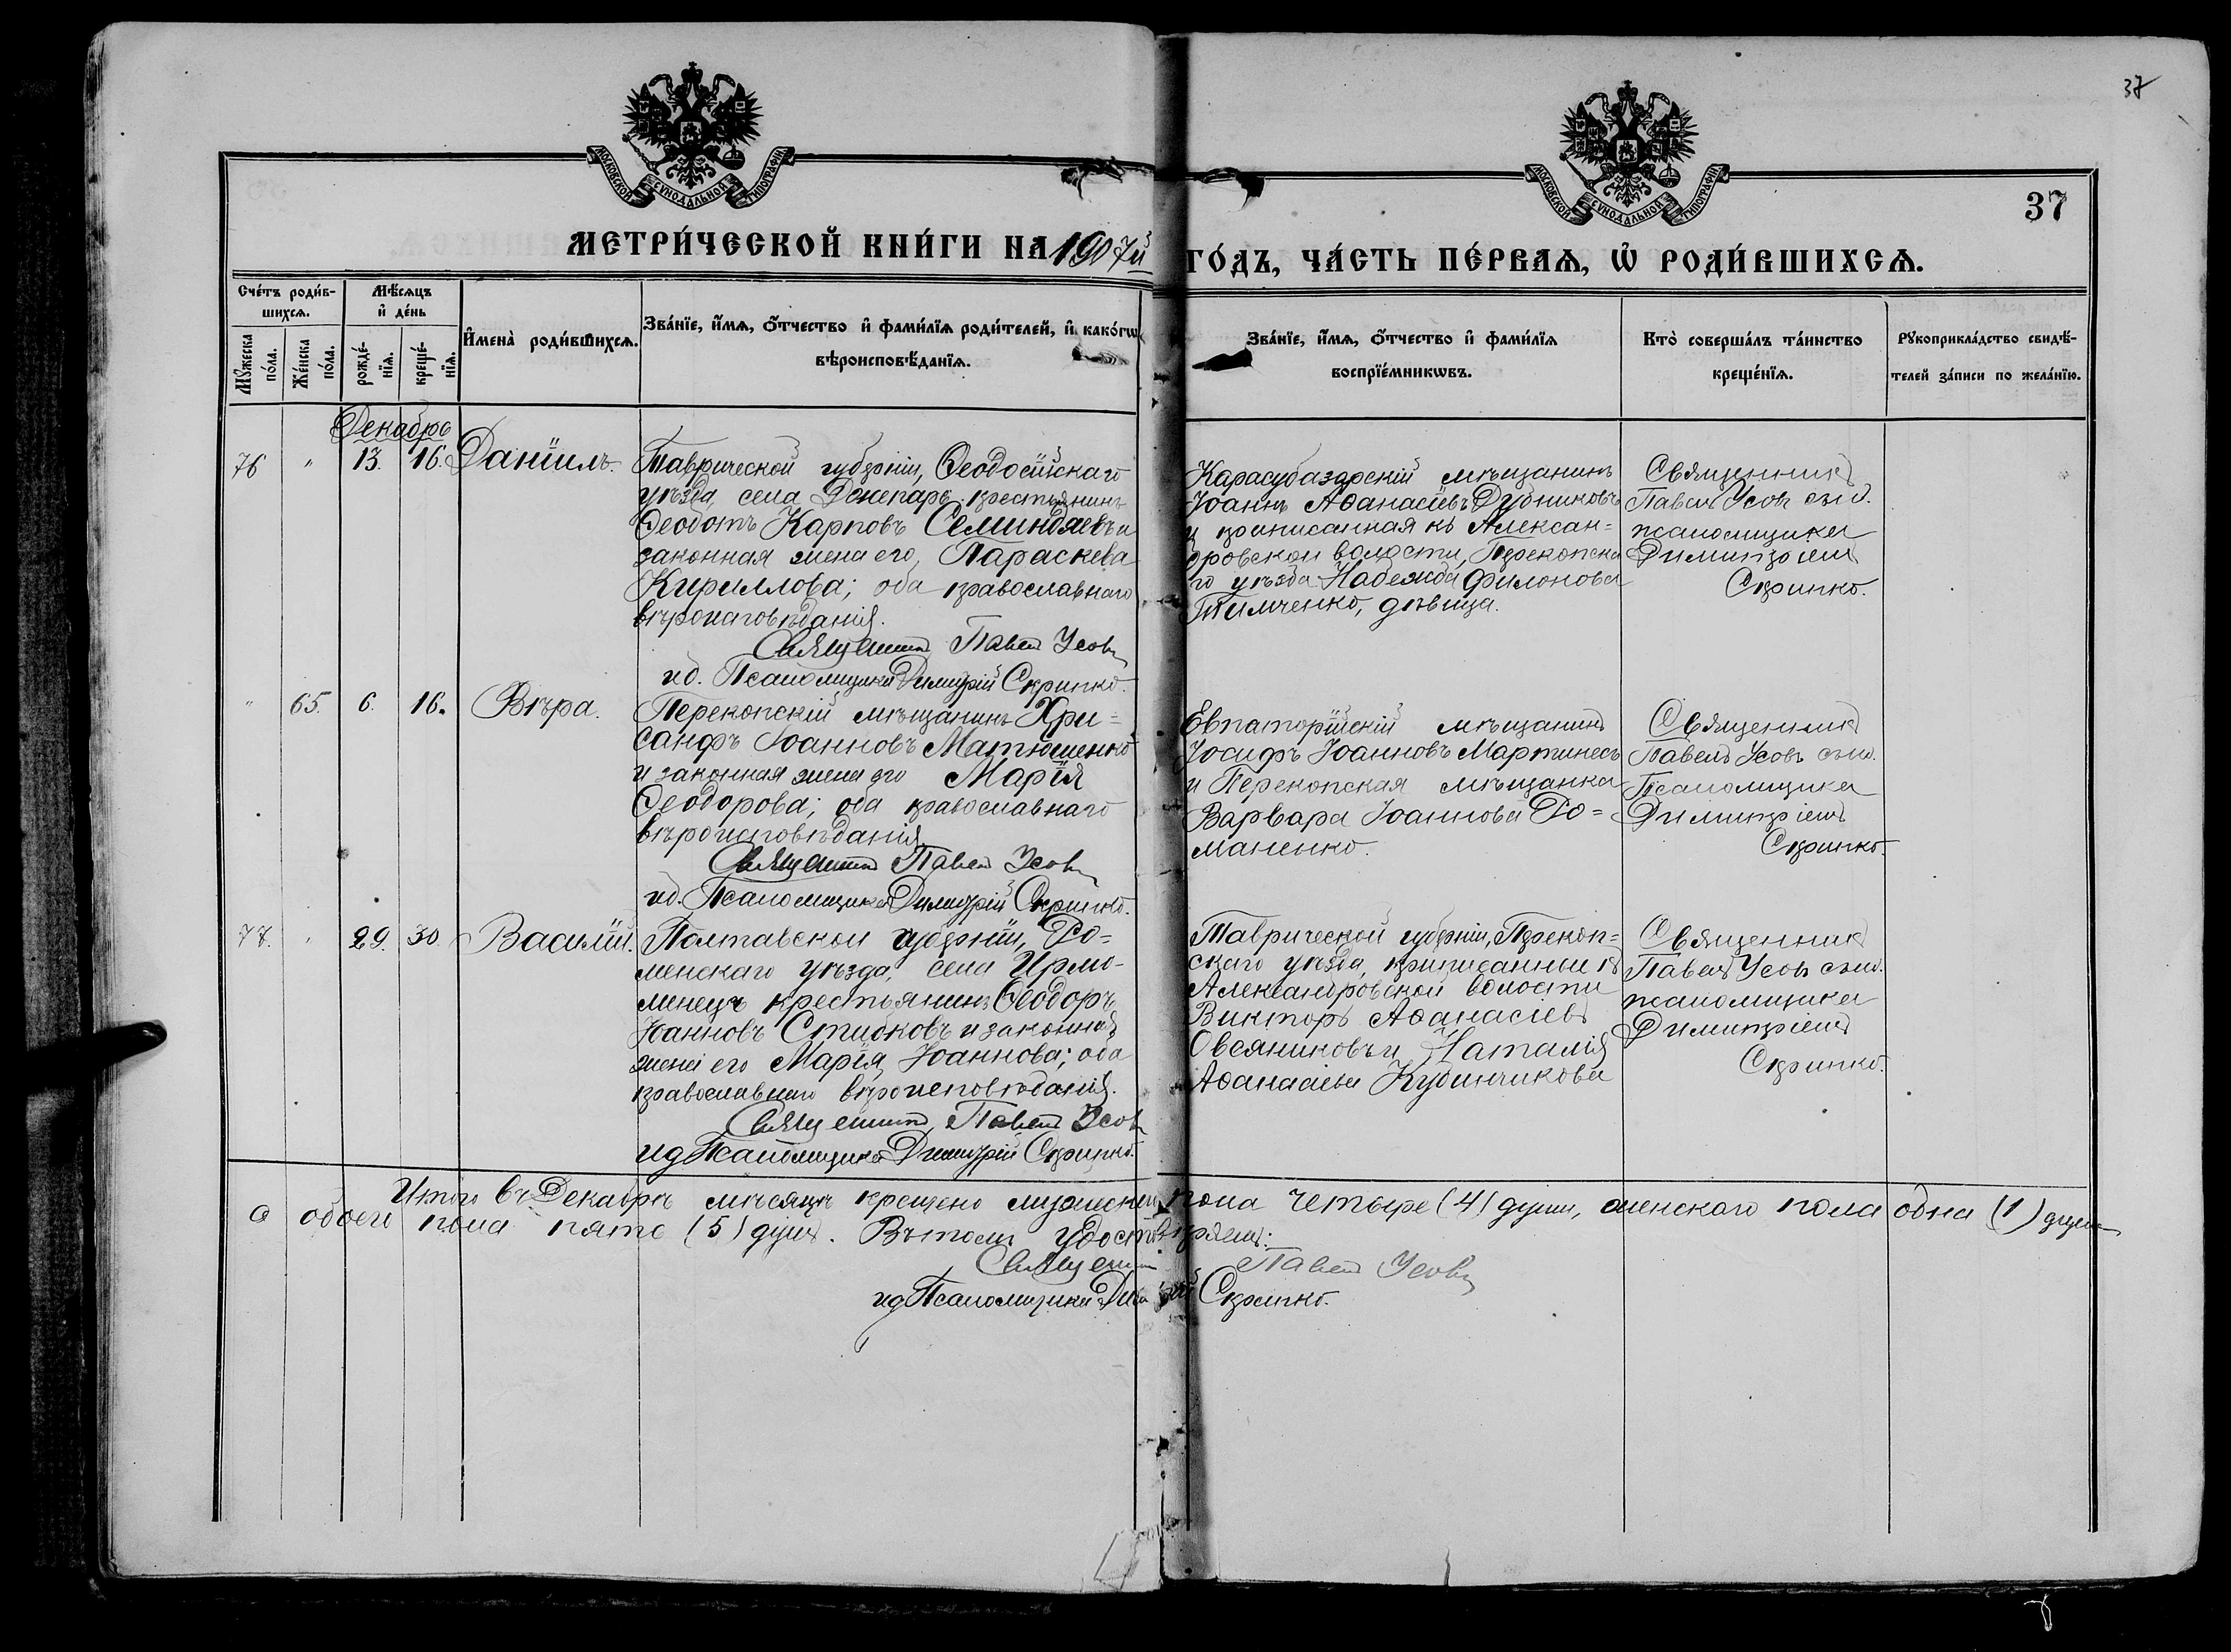 37
МОСКОВСКОЙ СУНОДАЛЬНОЙ ТИПОГРАФІИ
МОСКОВСКОЙ СУНОДАЛЬНОЙ ТИПОГРАФІИ
37
МЕТРИ́ЧЕСКОЙ КНИ́ГИ НА 1907й ГО́ДЪ, ЧА́СТЬ ПЕ́РВАѦ, Ѡ҆ РОДИ́ВШИХСѦ.
Сче́тъ роди́в-
шихсѧ.
Мꙋ́жеска по́ла.
Же́нска по́ла.
Мѣ́сѧцъ
и҆ де́нь
рожде́-
нїѧ.
креще́-
нїѧ.
И҆мена̀ роди́вшихсѧ.
Зва́нїе, и҆́мѧ, ѻ҆́тчество и҆ фами́лїѧ роди́телей, и҆ како́гѡ
вѣроисповѣ́данїѧ.
Зва́нїе, и҆́мѧ, ѻ҆́тчество и҆ фами́лїѧ
воспрїе́мникѡвъ.
Кто̀ соверша́лъ та́инство
креще́нїѧ.
Рꙋкоприкла́дство свидѣ́-
телей за́писи по жела́нїю.
Декабрь
76 " 13. 16. Даніилъ.
Таврической губерніи, Ѳеодосійскаго
уѣзда, села Джепаръ крестьянинъ
Ѳеодотъ Карповъ Семиндяевъ и
законная жена его, Параскева
Кириллова; оба православнаго
вѣроисповѣданія.
Священникъ Павелъ Усовъ
ид. Псаломщика Димитрій Скрипко.
Карасубазарскій мѣщанинъ
Іоаннъ Аѳанасіевъ Дубниковъ
и приписанная къ Алексан=
дровской волости, Перекопска
го уѣзда Надежда Филонова
Тимченко, дѣвица.
Священникъ
Павелъ Усовъ съ и.д.
псаломщика
Димитріемъ
Скрипко.
" 65. 6. 16. Вѣра.
Перекопскій мѣщанинъ Хри=
санфъ Іоанновъ Матюшенко
и законная жена его Марія
Ѳеодорова; оба православнаго
вѣроисповѣданія
Священникъ Павелъ Усовъ
ид. Псаломщика Димитрій Скрипко.
Евпаторійскій мѣщанинъ
Іосифъ Іоанновъ Мартинесъ
и Перекопская мѣщанка
Варвара Іоаннова Ро=
маненко.
Священникъ
Павелъ Усовъ съ и.д.
Псаломщика
Димитріемъ
Скрипко.
77. " 29. 30. Василій.
Полтавской губерніи, Ро=
менскаго уѣзда, села
крестьянинъ Ѳеодоръ
Іоанновъ Стибковъ и законная
жена его Марія Іоаннова; оба
православнаго вѣроисповѣданія.
Священникъ Павелъ Усовъ
ид Псаломщика Димитрій Скрипко.
Таврической губерніи, Перекоп=
скаго уѣзда, приписанные къ
Александровской волости
Викторъ Аѳанасіевъ
Овсяниковъ и Наталія
Аѳанасіева Кубинчикова
Священникъ
Павелъ Усовъ съ и.д.
псаломщика
Димитріемъ
Скрипко.
Итого въ Декабрѣ мѣсяцѣ крещено мужескаго пола четыре (4) души, женскаго пола одна (1) душа
а обоего пола пять (5) душъ. Въ томъ удостовѣряемъ:
Священникъ Павелъ Усовъ
ид Псаломщика Димитрій Скрипко.